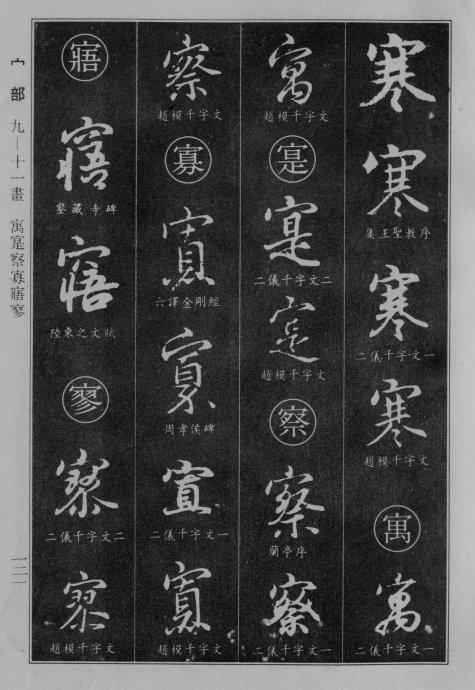 寒
寒
集王聖教序
寒
二儀千字文一
寒
趙模千字文
寓
寓
二儀千字文一
寓
趙模千字文
寔
寔
二儀千字文二
寔
趙模千字文
察
察
蘭亭序
察
二儀千字文一
察
趙模千字文
寡
寡
六譯金剛經
寡
周孝侯碑
寡
二儀千字文一
寡
趙模千字文
寤
寤
鏊藏寺碑
寤
陸柬之文狀
寥
寥
二儀千字文二
寥
趙模千字文
宀部 九—十一畫 寓寔察寡寤寥
一二一